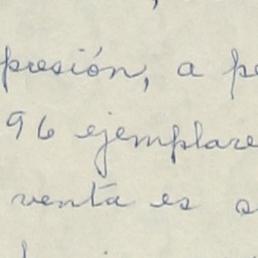 presión, a pe
96 ejemplare
venta es a